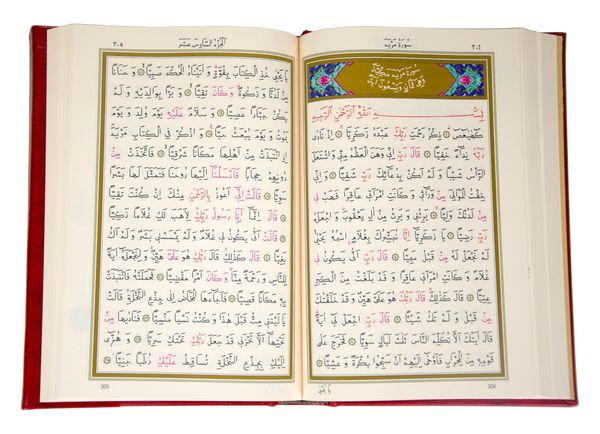 ٣٠٤
سُورَةُ مَرْيَمَ
سُورَةُ مَرْيَمَ مَكِّيَّةٌ
وَهِيَ ثَمَانٍ وَتِسْعُونَ آيَةً
بِسْمِ اللّٰهِ الرَّحْمٰنِ الرَّحِيمِ
كٓهٰيٰعٓصٓ ۝ ذِكْرُ رَحْمَتِ رَبِّكَ عَبْدَهُ زَكَرِيَّا ۝ إِذْ نَادٰى
رَبَّهُ نِدَاءً خَفِيًّا ۝ قَالَ رَبِّ إِنِّي وَهَنَ الْعَظْمُ مِنِّي وَاشْتَعَلَ
الرَّأْسُ شَيْبًا وَلَمْ أَكُنْ بِدُعَائِكَ رَبِّ شَقِيًّا ۝ وَإِنِّي
خِفْتُ الْمَوَالِيَ مِنْ وَرَائِي وَكَانَتِ امْرَأَتِي عَاقِرًا فَهَبْ لِي
مِنْ لَدُنْكَ وَلِيًّا ۝ يَرِثُنِي وَيَرِثُ مِنْ اٰلِ يَعْقُوبَ وَاجْعَلْهُ
رَبِّ رَضِيًّا ۝ يَا زَكَرِيَّا إِنَّا نُبَشِّرُكَ بِغُلَامٍ اسْمُهُ يَحْيٰى
لَمْ نَجْعَلْ لَهُ مِنْ قَبْلُ سَمِيًّا ۝ قَالَ رَبِّ أَنّٰى يَكُونُ لِي
غُلَامٌ وَكَانَتِ امْرَأَتِي عَاقِرًا وَقَدْ بَلَغْتُ مِنَ الْكِبَرِ
عِتِيًّا ۝ قَالَ كَذٰلِكَ قَالَ رَبُّكَ هُوَ عَلَيَّ هَيِّنٌ وَقَدْ خَلَقْتُكَ
مِنْ قَبْلُ وَلَمْ تَكُ شَيْئًا ۝ قَالَ رَبِّ اجْعَلْ لِي اٰيَةً
قَالَ اٰيَتُكَ أَلَّا تُكَلِّمَ النَّاسَ ثَلٰثَ لَيَالٍ سَوِيًّا ۝ فَخَرَجَ عَلٰى
قَوْمِهِ مِنَ الْمِحْرَابِ فَأَوْحٰى إِلَيْهِمْ أَنْ سَبِّحُوا بُكْرَةً وَعَشِيًّا ۝
يَا يَحْيٰى
304
اَلْجُزْءُ السَّادِسَ عَشَرَ
٣٠٥
يَا يَحْيٰى خُذِ الْكِتَابَ بِقُوَّةٍ وَاٰتَيْنَاهُ الْحُكْمَ صَبِيًّا ۝ وَحَنَانًا
مِنْ لَدُنَّا وَزَكٰوةً وَكَانَ تَقِيًّا ۝ وَبَرًّا بِوَالِدَيْهِ وَلَمْ
يَكُنْ جَبَّارًا عَصِيًّا ۝ وَسَلَامٌ عَلَيْهِ يَوْمَ وُلِدَ وَيَوْمَ
يَمُوتُ وَيَوْمَ يُبْعَثُ حَيًّا ۝ وَاذْكُرْ فِي الْكِتَابِ مَرْيَمَ
إِذِ انْتَبَذَتْ مِنْ أَهْلِهَا مَكَانًا شَرْقِيًّا ۝ فَاتَّخَذَتْ مِنْ
دُونِهِمْ حِجَابًا فَأَرْسَلْنَا إِلَيْهَا رُوحَنَا فَتَمَثَّلَ لَهَا بَشَرًا
سَوِيًّا ۝ قَالَتْ إِنِّي أَعُوذُ بِالرَّحْمٰنِ مِنْكَ إِنْ كُنْتَ تَقِيًّا
۝ قَالَ إِنَّمَا أَنَا رَسُولُ رَبِّكِ لِأَهَبَ لَكِ غُلَامًا زَكِيًّا
۝ قَالَتْ أَنّٰى يَكُونُ لِي غُلَامٌ وَلَمْ يَمْسَسْنِي بَشَرٌ وَلَمْ أَكُ
بَغِيًّا ۝ قَالَ كَذٰلِكِ قَالَ رَبُّكِ هُوَ عَلَيَّ هَيِّنٌ وَلِنَجْعَلَهُ اٰيَةً
لِلنَّاسِ وَرَحْمَةً مِنَّا وَكَانَ أَمْرًا مَقْضِيًّا ۝ فَحَمَلَتْهُ فَانْتَبَذَتْ
بِهِ مَكَانًا قَصِيًّا ۝ فَأَجَاءَهَا الْمَخَاضُ إِلٰى جِذْعِ النَّخْلَةِ قَالَتْ
يَا لَيْتَنِي مِتُّ قَبْلَ هٰذَا وَكُنْتُ نَسْيًا مَنْسِيًّا ۝ فَنَادٰيهَا مِنْ
تَحْتِهَا أَلَّا تَحْزَنِي قَدْ جَعَلَ رَبُّكِ تَحْتَكِ سَرِيًّا ۝ وَهُزِّي
إِلَيْكِ بِجِذْعِ النَّخْلَةِ تُسَاقِطْ عَلَيْكِ رُطَبًا جَنِيًّا ۝
305